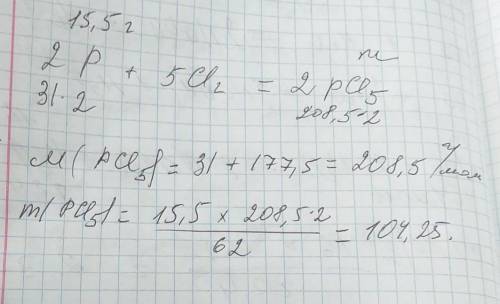 15,5 г
m
2 P + 5Cl₂ = 2 PCl₅
31·2
208,5·2
M(PCl₅) = 31 + 177,5 = 208,5 г/моль
m(PCl₅) = 15,5 x 208,5·2 / 62 = 104,25.